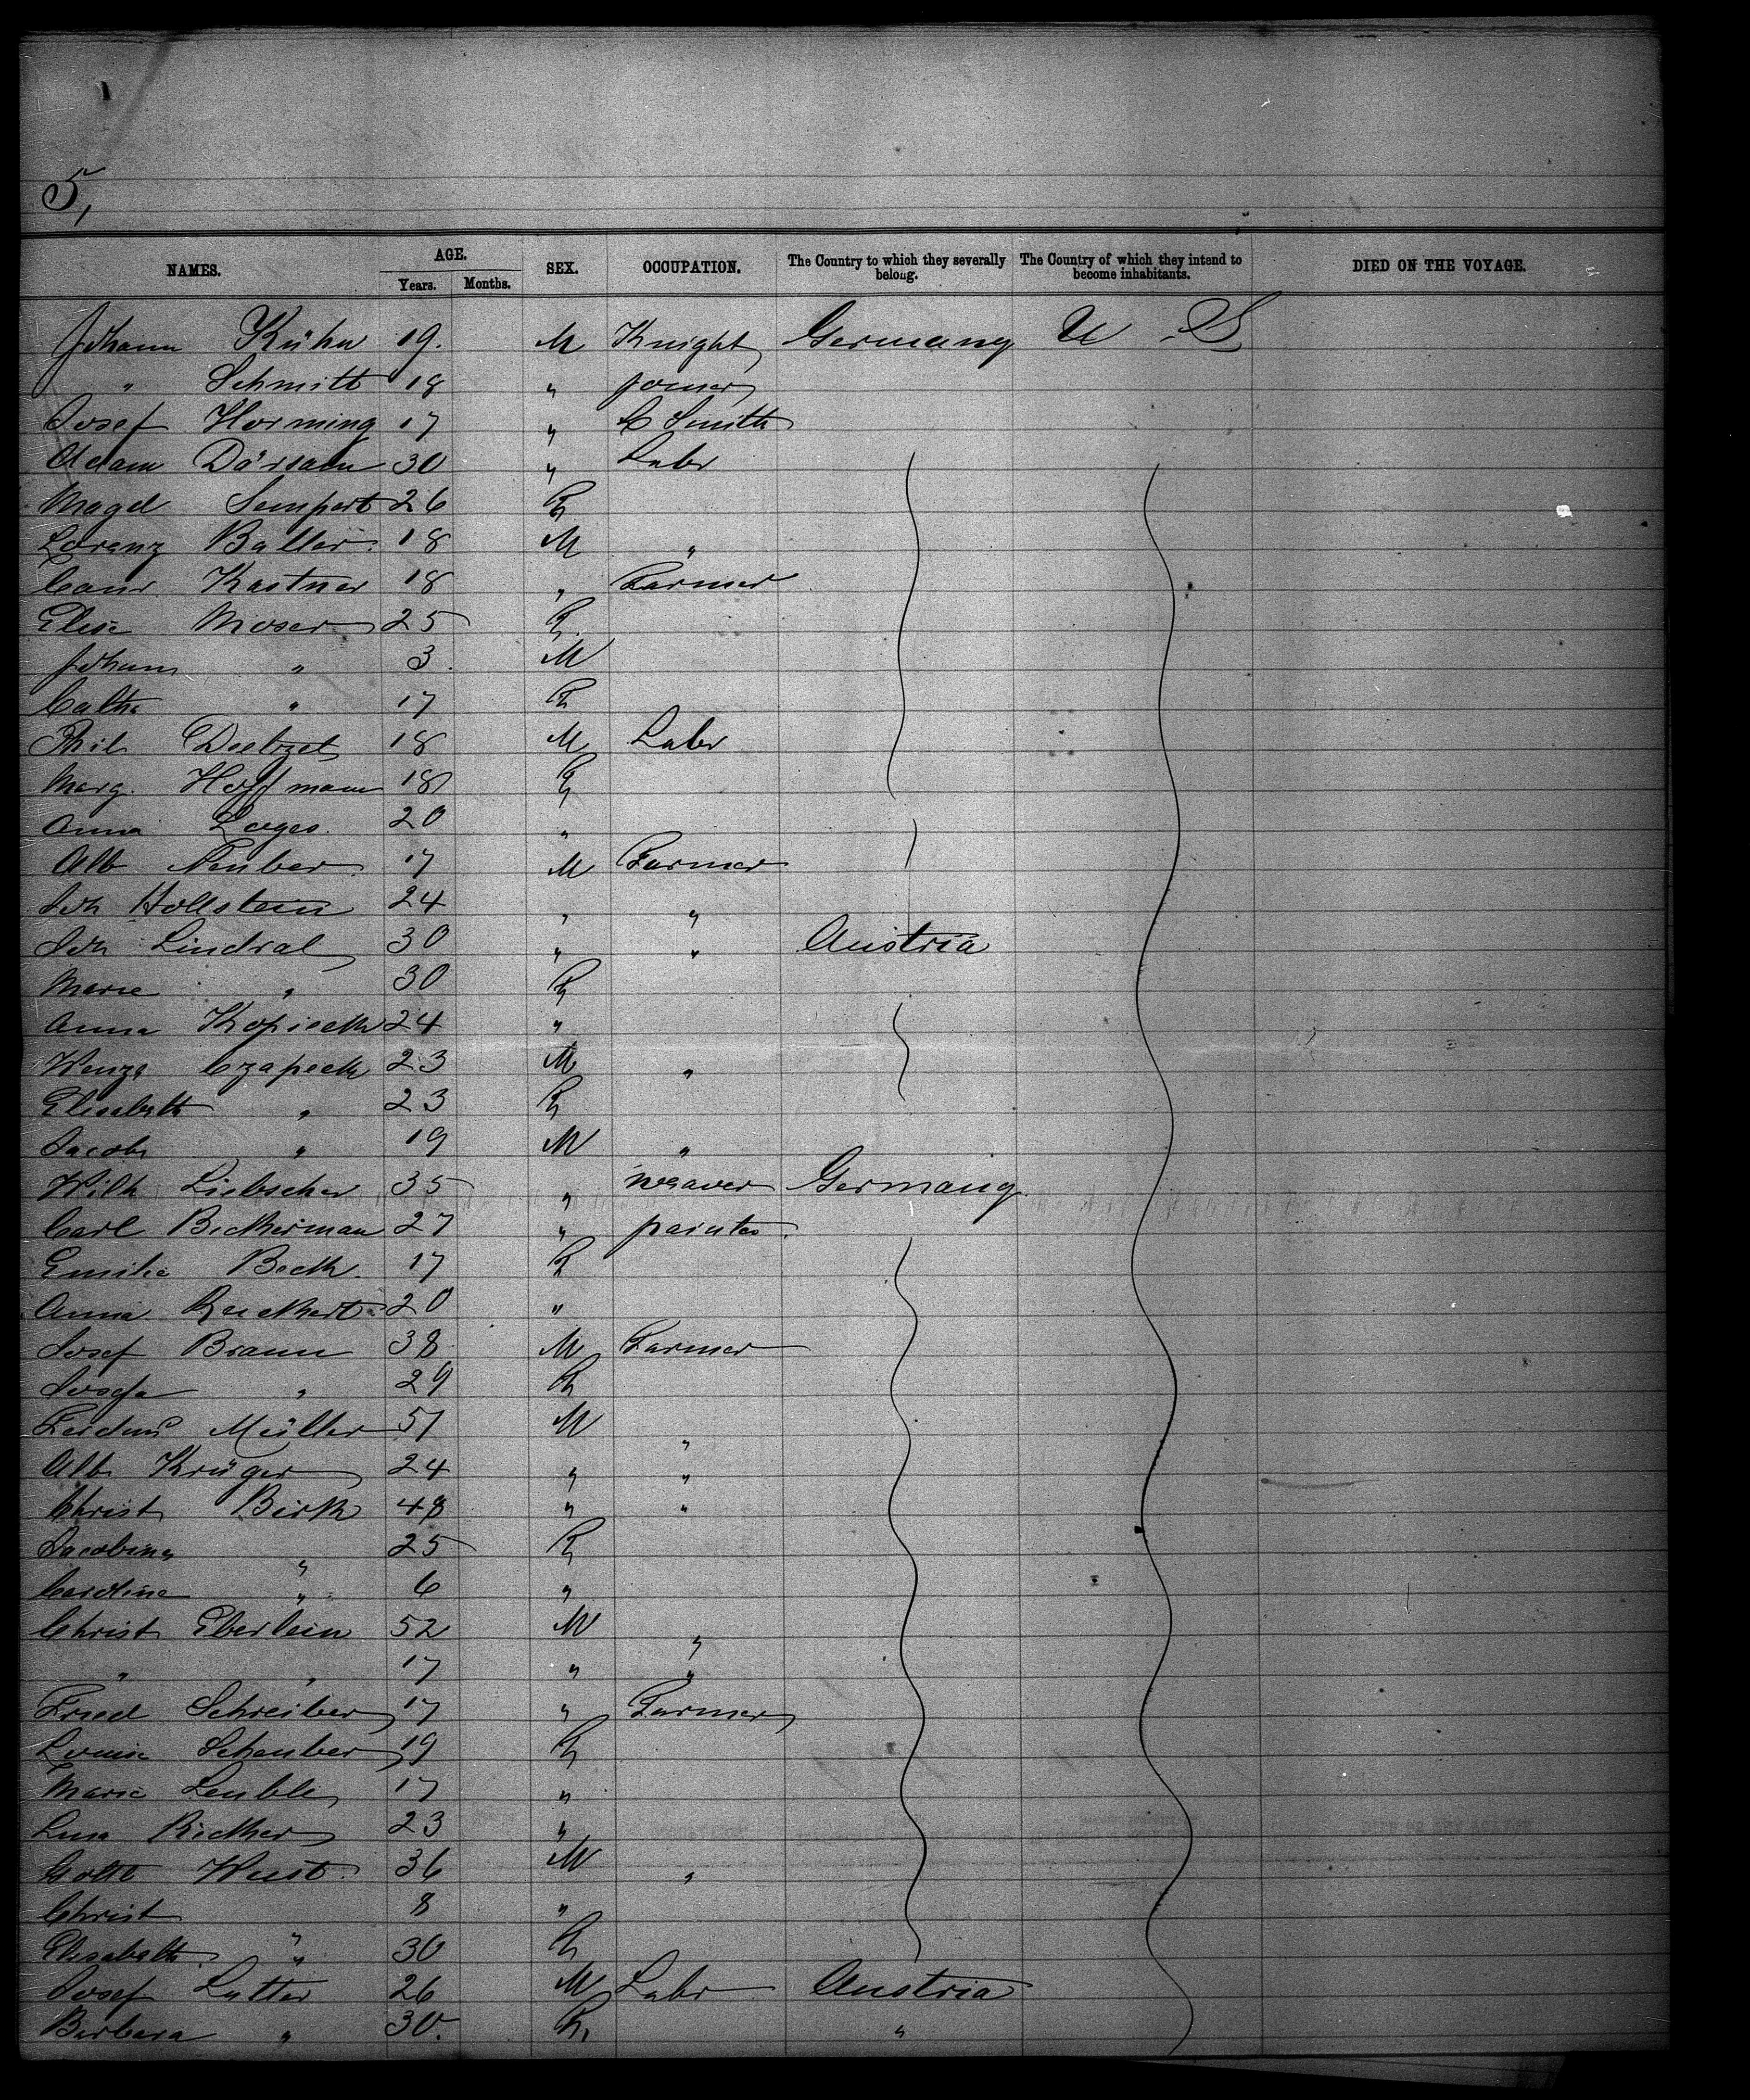 5,
NAMES. AGE. Years. Months. SEX. OCCUPATION. The Country to which they severally belong. The Country of which they intend to become inhabitants. DIED ON THE VOYAGE.
Johann Kühn 19. M Knight Germany U S
" Schmitt 18 " joiner
Josef Horming 17 " Smith
Adam Dörsam 30 " Labr
Magd Sempert 26
Lorenz Baller 18 M "
Conr Kastner 18 " Farmer
Elise Moser 25
Johann " 3 M
Cathe " 17
Phil Dietzel 18 M Labr
Marg. Hoffmann 18
Anna Loges 20 "
Alb Neuber 17 M Farmer
Joh Hollstein 24 " "
Joh Lindral 30 " " Austria
Marie " 30
Anna Kopieck 24 "
Wenzs Czapeck 23 M "
Elisabeth " 23
Jacob " 19 M "
Wilh Liebscher 35 " weaver Germany
Carl Beckerman 27 " painter
Emilie Beck 17
Anna Reickert 20 "
Josef Braun 38 M Farmer
Josefa " 29
Ferdind Müller 57 M "
Alb Krüger 24 " "
Christ Birk 48 " "
Jacobina " 25
Caroline " 6 "
Christ Eberlein 52 M "
" " 17 " "
Fried Schreiber 17 " Farmer
Louise Schauber 19
Marie Leuble 17 "
Luisa Ricker 23 "
Gottl Wust 36 M "
Christ " 8 "
Elisabeth " 30
Josef Lutter 26 M Labr Austria
Barbara " 30. "